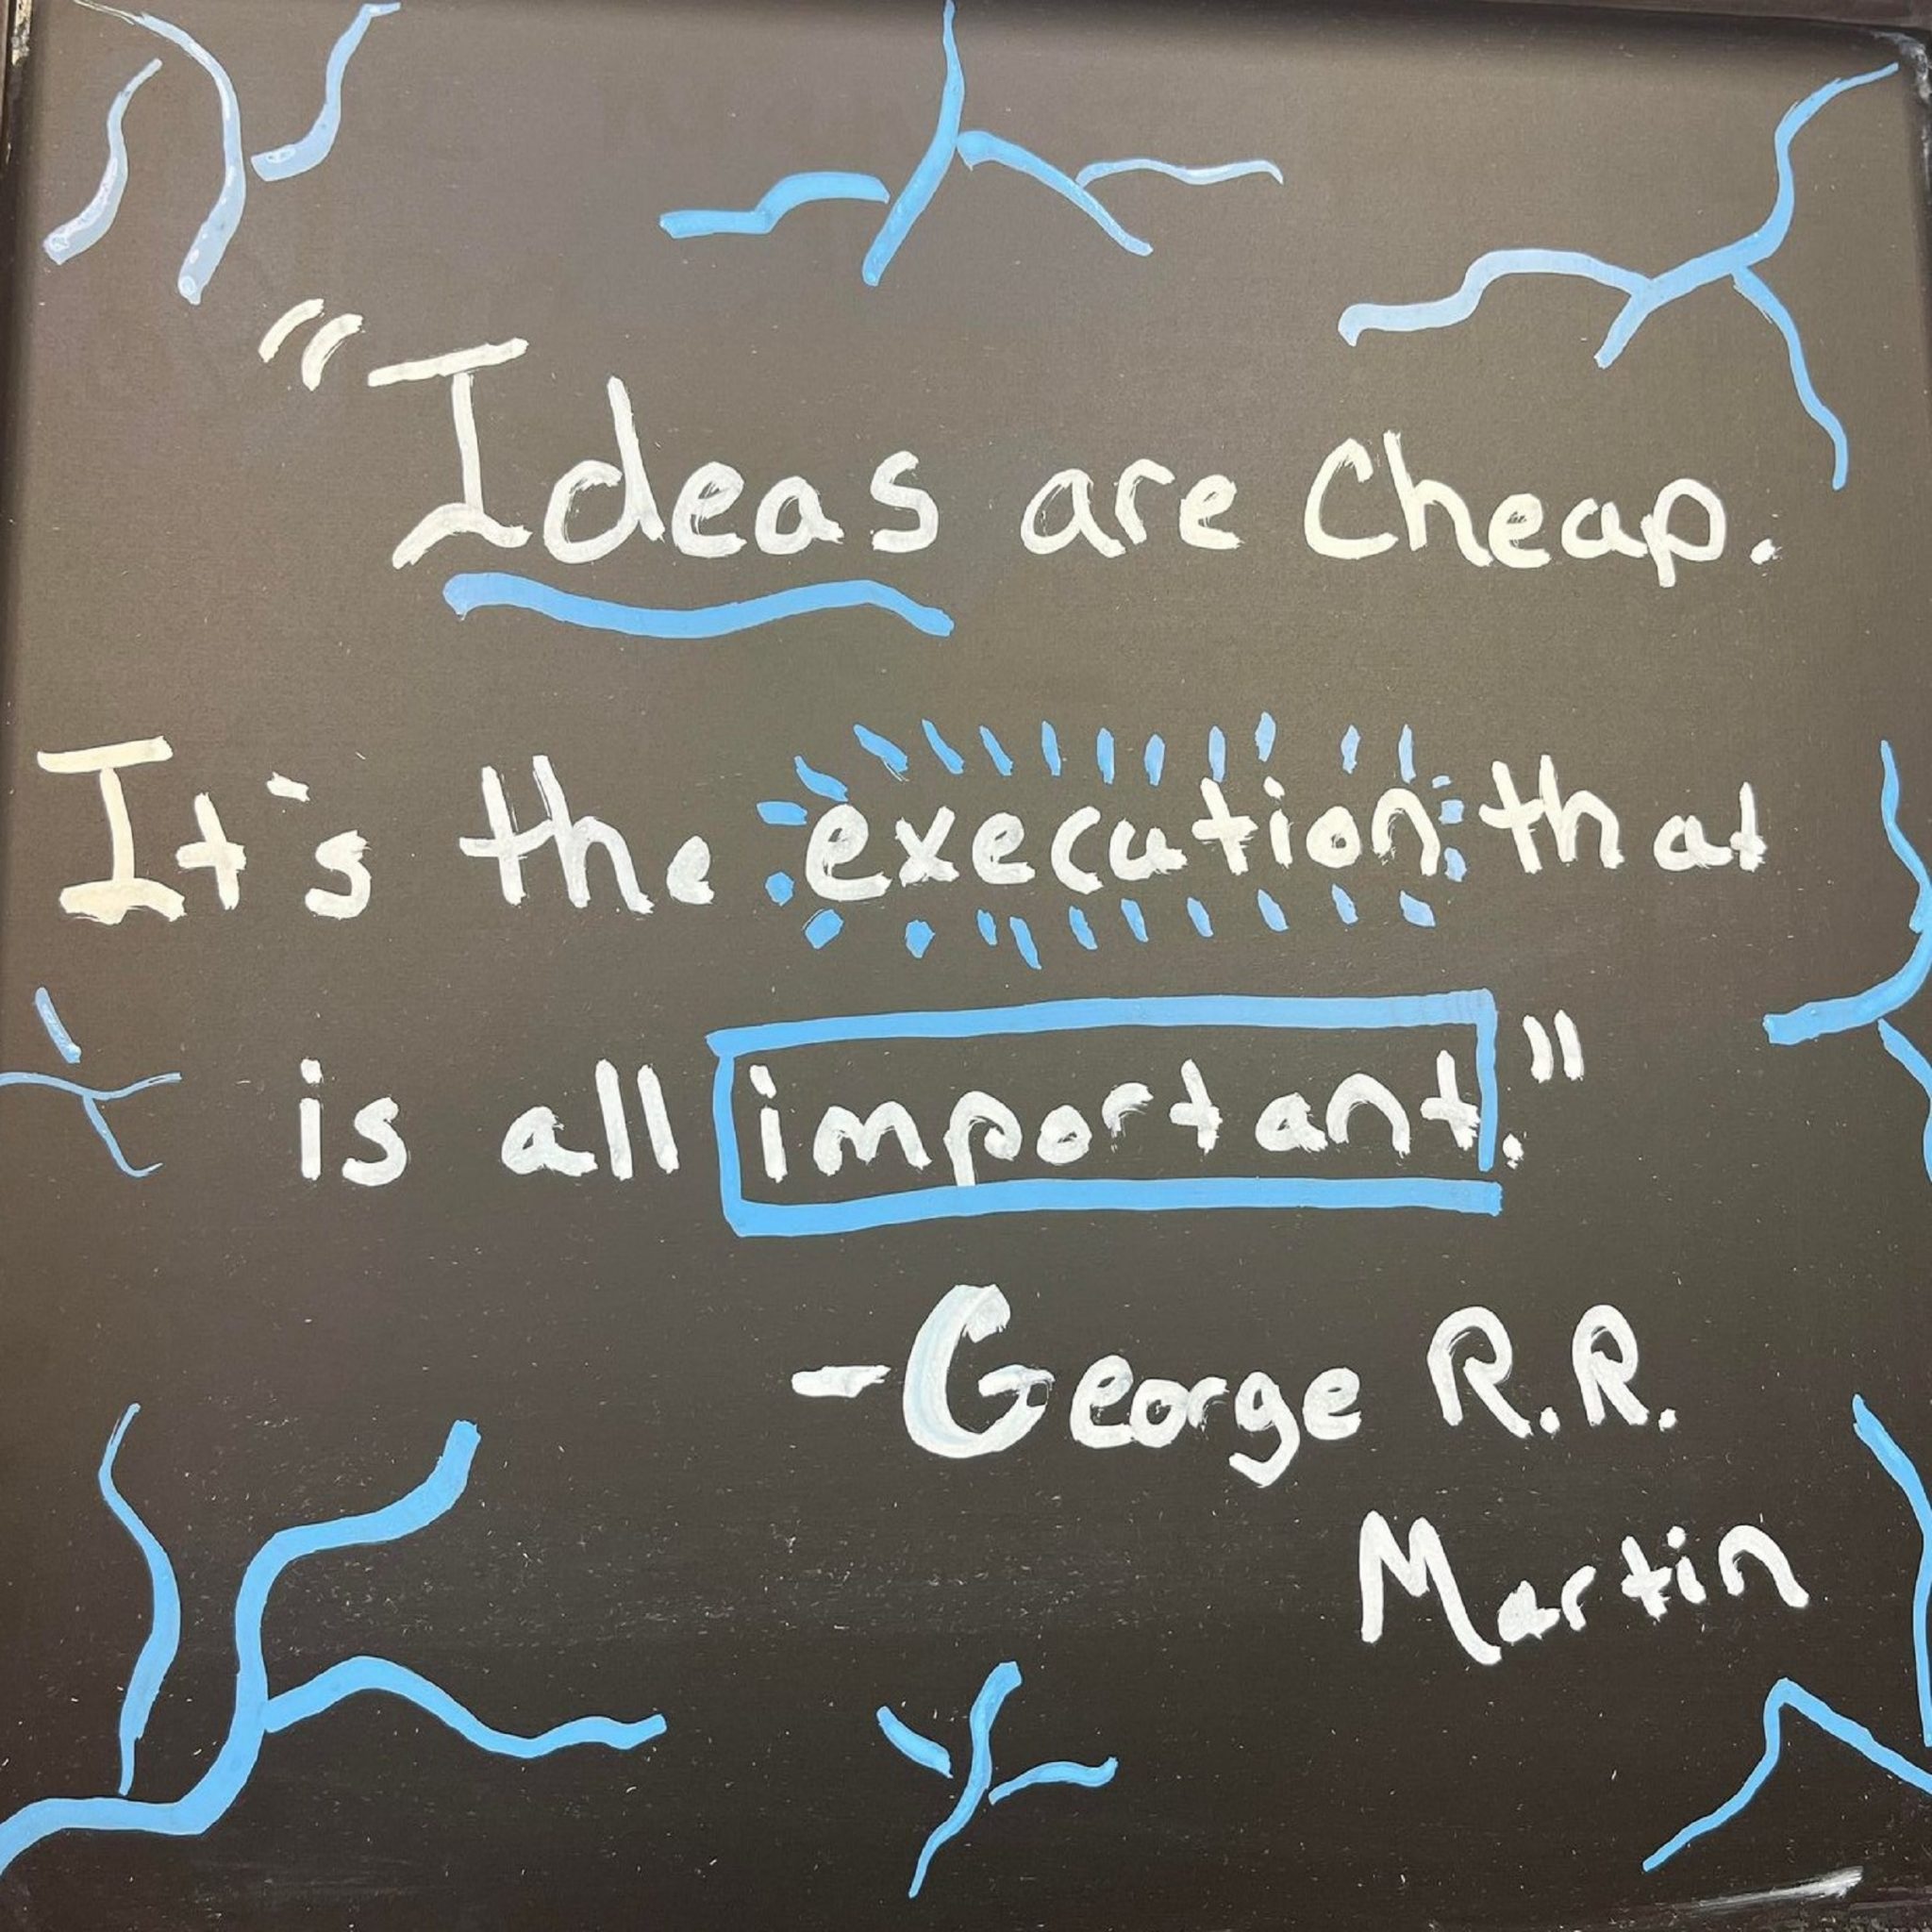 "Ideas are Cheap.
It's the execution that
is all important."
-George R.R.
Martin